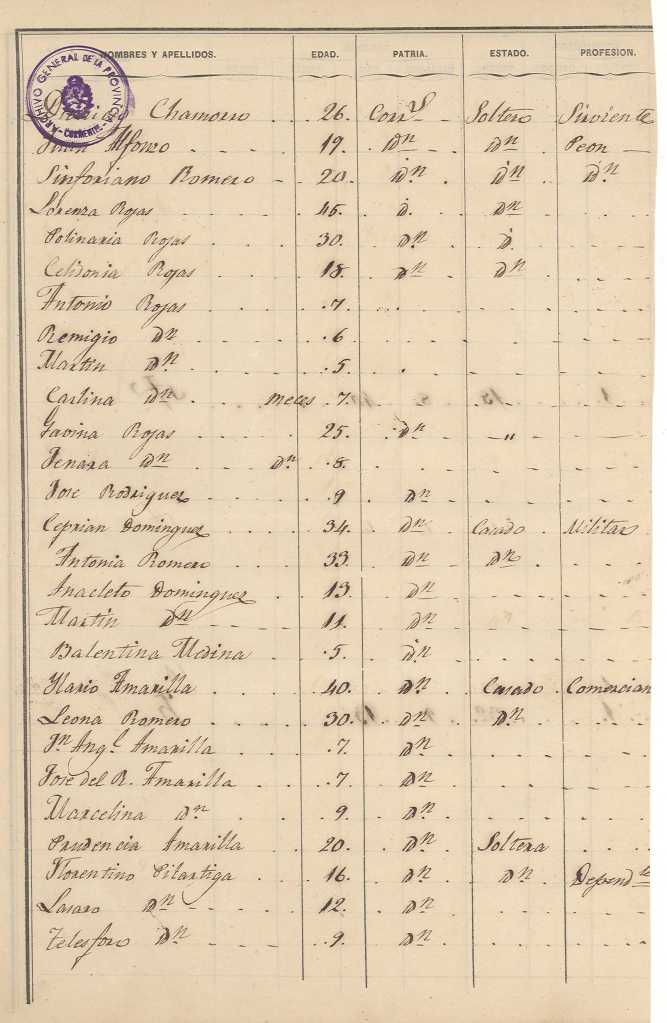 NOMBRES Y APELLIDOS. EDAD. PATRIA. ESTADO. PROFESION.
ARCHIVO GENERAL DE LA PROVINCIA - CORRIENTES -
Chamorro 26. Corr.s Soltero Sirviente
Juan Alfonzo 19. Dn Dn Peon
Sinforiano Romero 20. Dn Dn Dn
Lorenza Rojas 45. D. Dn
Polinaria Rojas 30. Dn D
Celidonia Rojas 18. Dn Dn
Antonio Rojas 7.
Remigio Dn 6
Martin Dn 5
Carlina Dn meces 7.
Gavina Rojas 25. Dn "
Jenara Dn Dn 8.
Jose Rodriguez 9 Dn
Ceprian Dominguez 34. Dn Casado Militar
Antonia Romero 33. Dn Dn
Anacleto Dominguez 13. Dn
Martin Dn 11. Dn
Balentina Medina 5. Dn
Ylario Amarilla 40. Dn Casado Comercian
Leona Romero 30. Dn Dn
Jn Angl Amarilla 7. Dn
Jose del R. Amarilla 7 Dn
Marcelina Dn 9. Dn
Prudencia Amarilla 20. Dn Soltera
Florentino Pilartiga 16. Dn Dn Dependte
Lasaro Dn 12. Dn
Telesforo Dn 9. Dn